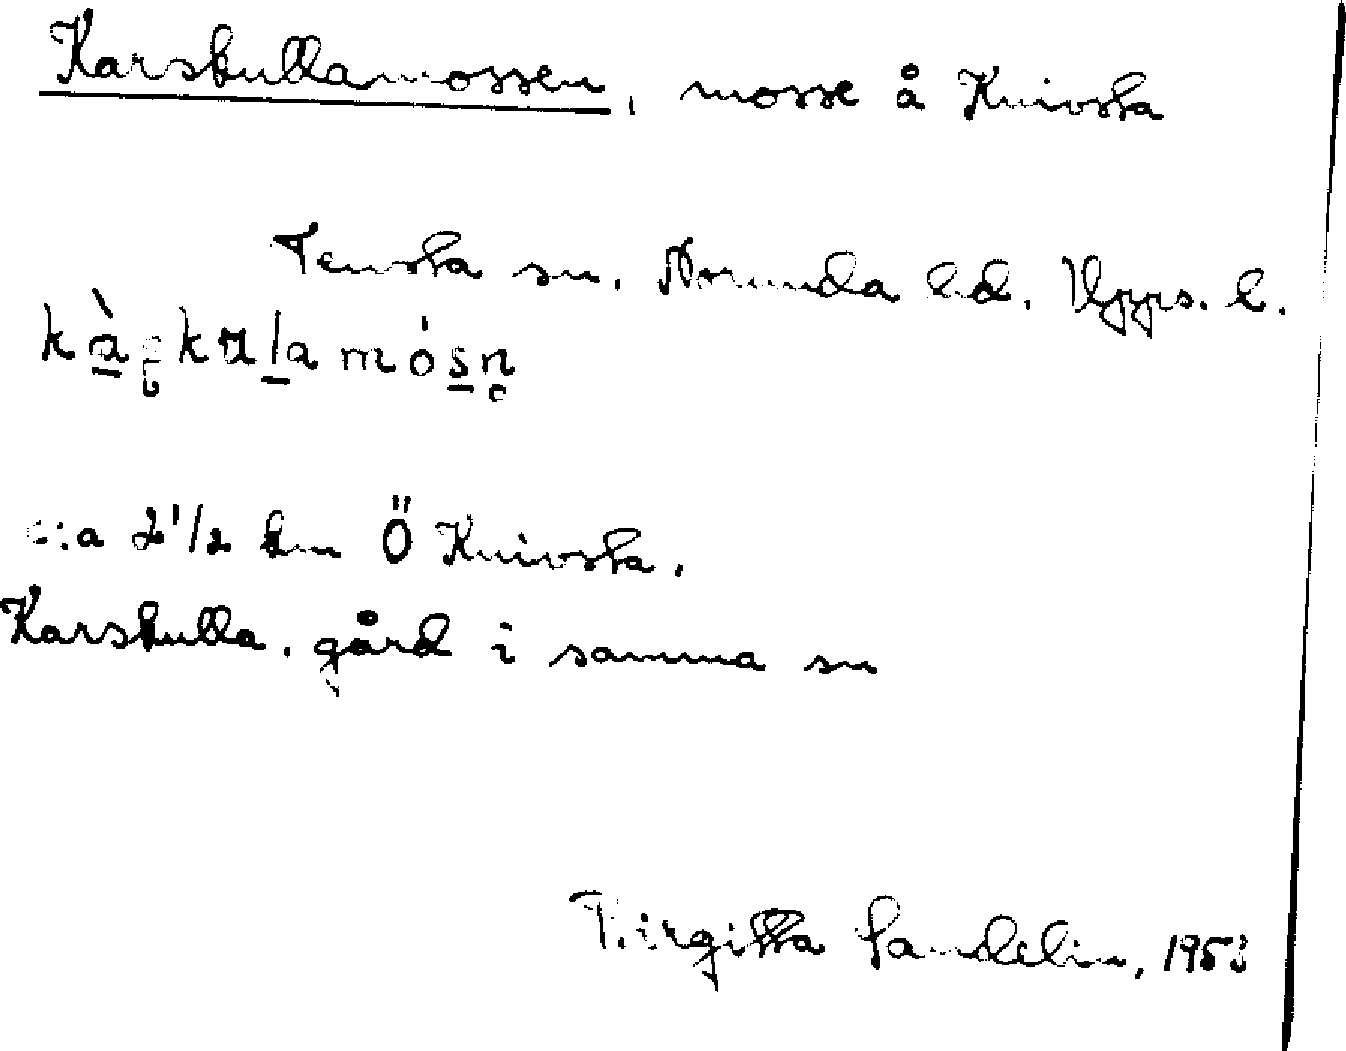 Karskullamossen, mosse å Knivsta
Tensta sn. Norunda hd. Upps. l.
kàʂkulamósn̥
c:a 2 1/2 km Ö Knivsta.
Karskulla, gård i samma sn
Birgitta Sandelin, 1953